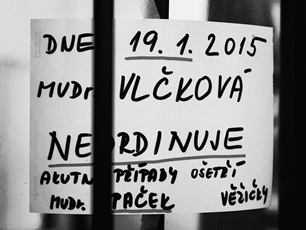 DNE 19.1.2015
MUDr VLČKOVÁ
NEORDINUJE
AKUTN PŘÍPADY OŠETŘÍ
MUDr. PAČEK VĚŽIČKY